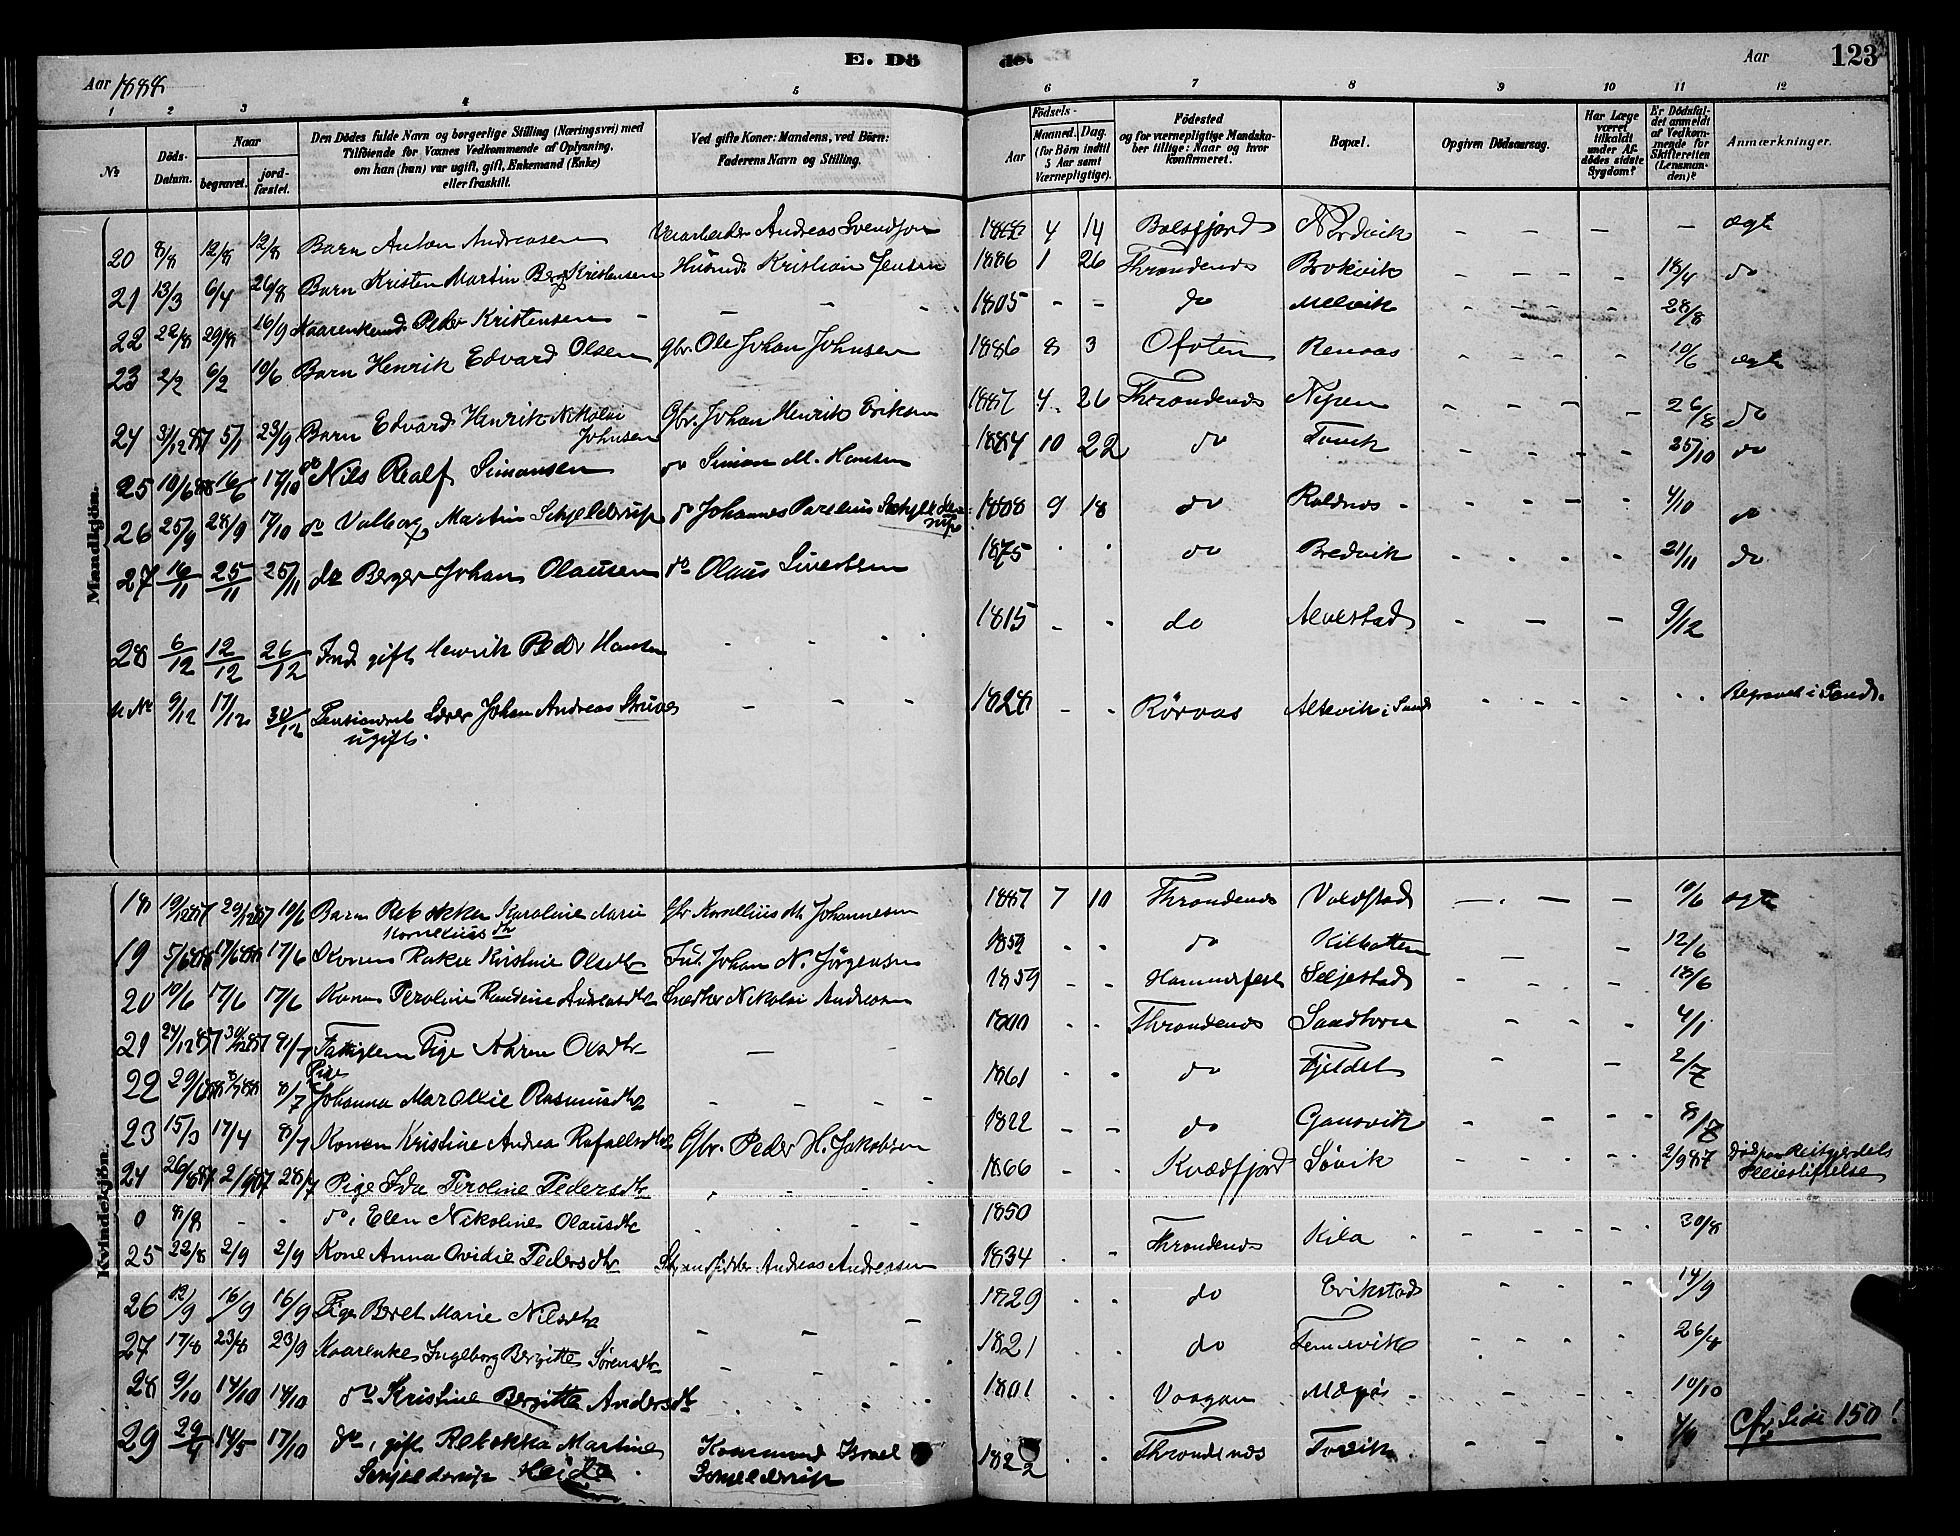 E. Dö
de.
123
Aar 1888
Aar
1 2 3 4 5 6 7 8 9 10 11 12
No
Döds-Datum.
Naar
begravet.
jord-fæstet.
Den Dödes fulde Navn og borgerlige Stilling (Næringsvei) med
Tilföiende for Voxnes Vedkommende af Oplysning,
om han (hun) var ugift, gift, Enkemand (Enke)
eller fraskilt.
Ved gifte Koner: Mandens, ved Börn:
Faderens Navn og Stilling.
Födsels-
Aar
Maaned. Dag.
(for Börn indtil
5 Aar samt
Værnepligtige).
Födested
og for værnepligtige Mandska-
ber tillige: Naar og hvor
konfirmeret.
Bopæl.
Opgiven Dödsaarsag.
Har Læge
været
tilkaldt
under Af-
dödes sidste
Sygdom?
Er Dödsfal-
det anmeldt
af Vedkom-
mende for
Skifteretten
(Lensman-
den)?
Anmærkninger.
Mandkjön.
20 8/8 12/8 12/8 Barn Anton Andreasen Andreas Svendsen 1888 4 14 Balsfjord Nordvik - - - - ægte
21 13/3 6/4 26/8 Barn Kristen Martin Berg Kristensen Husmd. Kristian Jensen 1886 1 26 Throndenes Brokvik - - - - 18/4 do
22 22/8 29/8 16/9 Kaarenkemd. Peder Kristensen - - - 1805 - - do Melvik - - - - 28/8
23 2/2 6/2 10/6 Barn Henrik Edvard Olsen Gbr. Ole Johan Johnsen 1886 8 3 Ofoten Renaas - - - - 10/6 ægte
24 31/12 87 5/1 23/9 Barn Edvard Henrik Nikolai Johnsen Gbr. Johan Henrik Eriksen 1887 4 26 Throndenes Nipen - - - - 26/8 do
25 10/6 88 16/6 17/10 do Nils Realf Simonsen do Simon M. Hansen 1884 10 22 do - - - - 25/10 do
26 25/9 28/9 17/10 do Valborg Martin Schjelderup do Johannes Parelius Schjelderup 1888 9 18 do - - - - 4/10 do
27 16/11 25/11 25/11 do Berger Johan Olausen do Olaus Sivertsen 1875 - - do Bredvik - - - - 21/11 do
28 6/12 12/12 26/12 Ind. gift Henrik Peder Hansen - - - - 1815 - - do Alvestad - - - 9/12
u No 9/12 17/12 30/12 Pensioneret Lærer Johan Andreas Struve
ugift. - - - 1828 - - Røraas Altevik i Sand - - - - - - Begravet i Sand.
Kvindekjön.
18 19/12 87 29/12 87 10/6 Barn Rebekka Karoline Marie
Korneliusdtr Gbr Kornelius M. Johannesen 1887 7 10 Throndenes Voldstad - - - - 10/6 ægte
19 5/6 88 17/6 88 17/6 Konen Kristine Olsdtr Ind. Johan N. Jörgensen 1859 - - do Kilbotten - - 12/6
20 10/6 17/6 17/6 Konen Peroline Andreasdtr Nikolai Andreasen 1859 - - Hammerfest Seljestad - - - - 18/6
21 24/12 87 30/12 87 Fattiglem Pige Olsdtr - 1800 - - Throndenes Sandtorv - - - 4/1
22 8/7 Pige
Johanna Rasmusdtr - - - - 1861 - - do Fjeldet - - 2/7
23 17/4 8/7 Konen Kristine Andrea Rafaelsdtr Gbr. Peder H. Jakobsen 1822 - - do Gansvik - - - - 8/7
24 26/8 87 2/9 87 28/7 Pige Ida Peroline Pedersdtr - - - 1866 - - Kvædfjord Søvik - - - - 2/9 87 Död paa
Pleiestiftelse
0 8/8 - - do, Elen Nikoline Olausdtr - - - - 1850
25 22/8 2/9 2/9 Kone Anna Ovidie Pedersdtr Strandsidder Andreas Andreasen 1834 - - Throndenes Kila - - - - 30/8
26 12/9 16/9 16/9 Pige Beret Marie Nilsdtr - - - 1829 - - do Erikstad - - - 14/9
27 17/8 23/8 23/9 Kaarenke Ingeborg Bergitte Sörensdtr - - - 1821 - - do - - - - 26/8
28 9/10 14/10 14/10 do Kristine Bergitte Andersdtr - - - - 1801 - - Vaagan - - - - 10/10
29 14/5 17/10 do, gift Rebekka Martine
Schjelderup Heide. Israel
Schjelderup 1822 - - Throndenes - - - Cfr. Side 150!